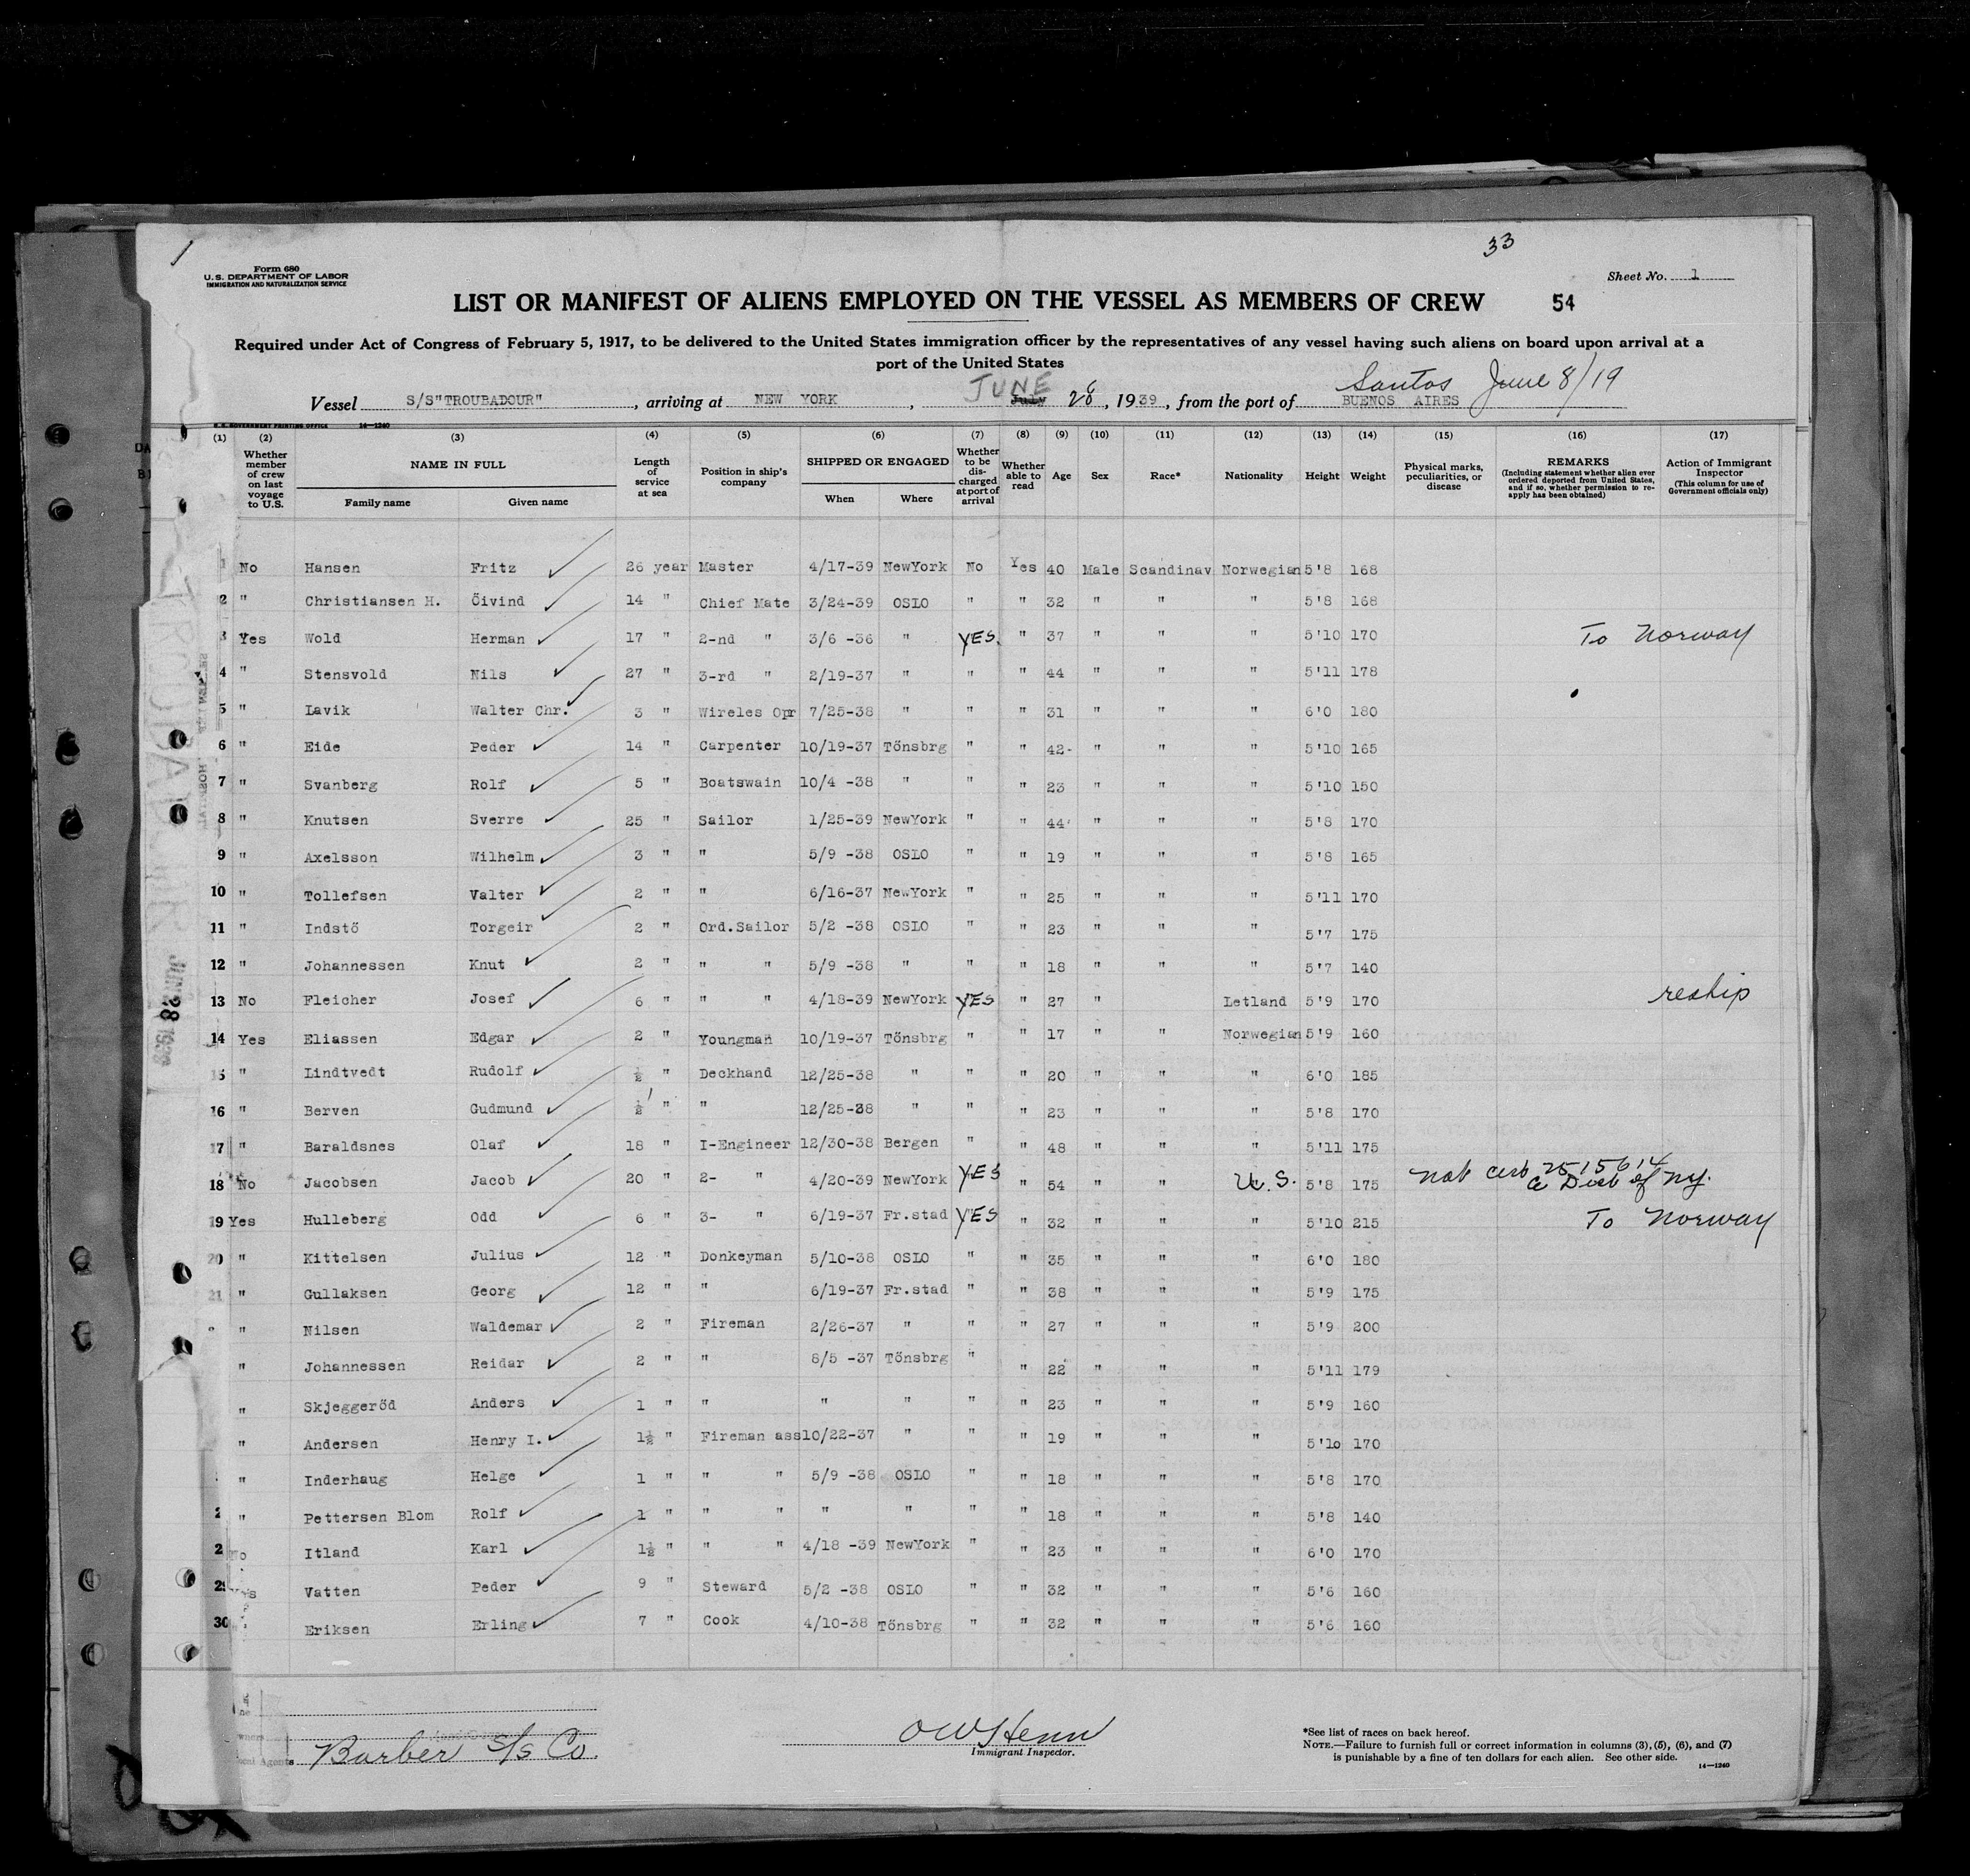 33
Form 680
U. S. DEPARTMENT OF LABOR
IMMIGRATION AND NATURALIZATION SERVICE
Sheet No. 1
LIST OR MANIFEST OF ALIENS EMPLOYED ON THE VESSEL AS MEMBERS OF CREW 54
Required under Act of Congress of February 5, 1917, to be delivered to the United States immigration officer by the representatives of any vessel having such aliens on board upon arrival at a
port of the United States
Santos June 8/19
Vessel S/S"TROUBADOUR", arriving at NEW YORK, JUNE July 28, 1939, from the port of BUENOS AIRES
U. S. GOVERNMENT PRINTING OFFICE 14—1240
(1) (2) (3) (4) (5) (6) (7) (8) (9) (10) (11) (12) (13) (14) (15) (16) (17)
Whether member of crew on last voyage to U.S. NAME IN FULL Family name Given name Length of service at sea Position in ship's company SHIPPED OR ENGAGED When Where Whether to be discharged at port of arrival Whether able to read Age Sex Race* Nationality Height Weight Physical marks, peculiarities, or disease REMARKS (Including statement whether alien ever ordered deported from United States, and if so, whether permission to reapply has been obtained) Action of Immigrant Inspector (This column for use of Government officials only)
1 No Hansen Fritz 26 year Master 4/17-39 NewYork No Yes 40 Male Scandinav Norwegian 5'8 168
2 " Christiansen H. Öivind 14 " Chief Mate 3/24-39 OSLO " " 32 " " " 5'8 168
3 Yes Wold Herman 17 " 2-nd " 3/6 -36 " YES. " 37 " " " 5'10 170 To Norway
4 " Stensvold Nils 27 " 3-rd " 2/19-37 " " " 44 " " " 5'11 178
5 " Lavik Walter Chr. 3 " Wireles Opr 7/25-38 " " " 31 " " " 6'0 180
6 " Eide Peder 14 " Carpenter 10/19-37 Tönsbrg " " 42 " " " 5'10 165
7 " Svanberg Rolf 5 " Boatswain 10/4 -38 " " " 23 " " " 5'10 150
8 " Knutsen Sverre 25 " Sailor 1/25-39 NewYork " " 44 " " " 5'8 170
9 " Axelsson Wilhelm 3 " " 5/9 -38 OSLO " " 19 " " " 5'8 165
10 " Tollefsen Valter 2 " " 6/16-37 NewYork " " 25 " " " 5'11 170
11 " Indstö Torgeir 2 " Ord.Sailor 5/2 -38 OSLO " " 23 " " " 5'7 175
12 " Johannessen Knut 2 " " " 5/9 -38 " " " 18 " " " 5'7 140
13 No Fleicher Josef 6 " " " 4/18-39 NewYork YES " 27 " Letland 5'9 170 reship
14 Yes Eliassen Edgar 2 " Youngman 10/19-37 Tönsbrg " " 17 " " Norwegian 5'9 160
15 " Lindtvedt Rudolf ½ " Deckhand 12/25-38 " " " 20 " " " 6'0 185
16 " Berven Gudmund ½ " " 12/25-38 " " " 23 " " " 5'8 170
17 " Baraldsnes Olaf 18 " I-Engineer 12/30-38 Bergen " " 48 " " " 5'11 175
18 No Jacobsen Jacob 20 " 2- " 4/20-39 NewYork YES " 54 " " U. S. 5'8 175 Nat Cert 2515614
19 Yes Hulleberg Odd 6 " 3- " 6/19-37 Fr.stad YES " 32 " " " 5'10 215 To Norway
20 " Kittelsen Julius 12 " Donkeyman 5/10-38 OSLO " " 35 " " " 6'0 180
21 " Gullaksen Georg 12 " " 6/19-37 Fr.stad " " 38 " " " 5'9 175
" Nilsen Waldemar 2 " Fireman 2/26-37 " " " 27 " " " 5'9 200
" Johannessen Reidar 2 " " 8/5 -37 Tönsbrg " " 22 " " " 5'11 179
" Skjeggeröd Anders 1 " " " " " " 23 " " " 5'9 160
" Andersen Henry I. 1½ " Fireman ass 10/22-37 " " " 19 " " " 5'10 170
" Inderhaug Helge 1 " " " 5/9 -38 OSLO " " 18 " " " 5'8 170
2 " Pettersen Blom Rolf 1 " " " " " " " 18 " " " 5'8 140
2 Itland Karl 1½ " " " 4/18 -39 NewYork " " 23 " " " 6'0 170
29 Vatten Peder 9 " Steward 5/2 -38 OSLO " " 32 " " " 5'6 160
30 " Eriksen Erling 7 " Cook 4/10-38 Tönsbrg " " 32 " " " 5'6 160
Barber S/S Co.
OWHenn
Immigrant Inspector.
*See list of races on back hereof.
NOTE.—Failure to furnish full or correct information in columns (3), (5), (6), and (7)
is punishable by a fine of ten dollars for each alien. See other side.
14—1240